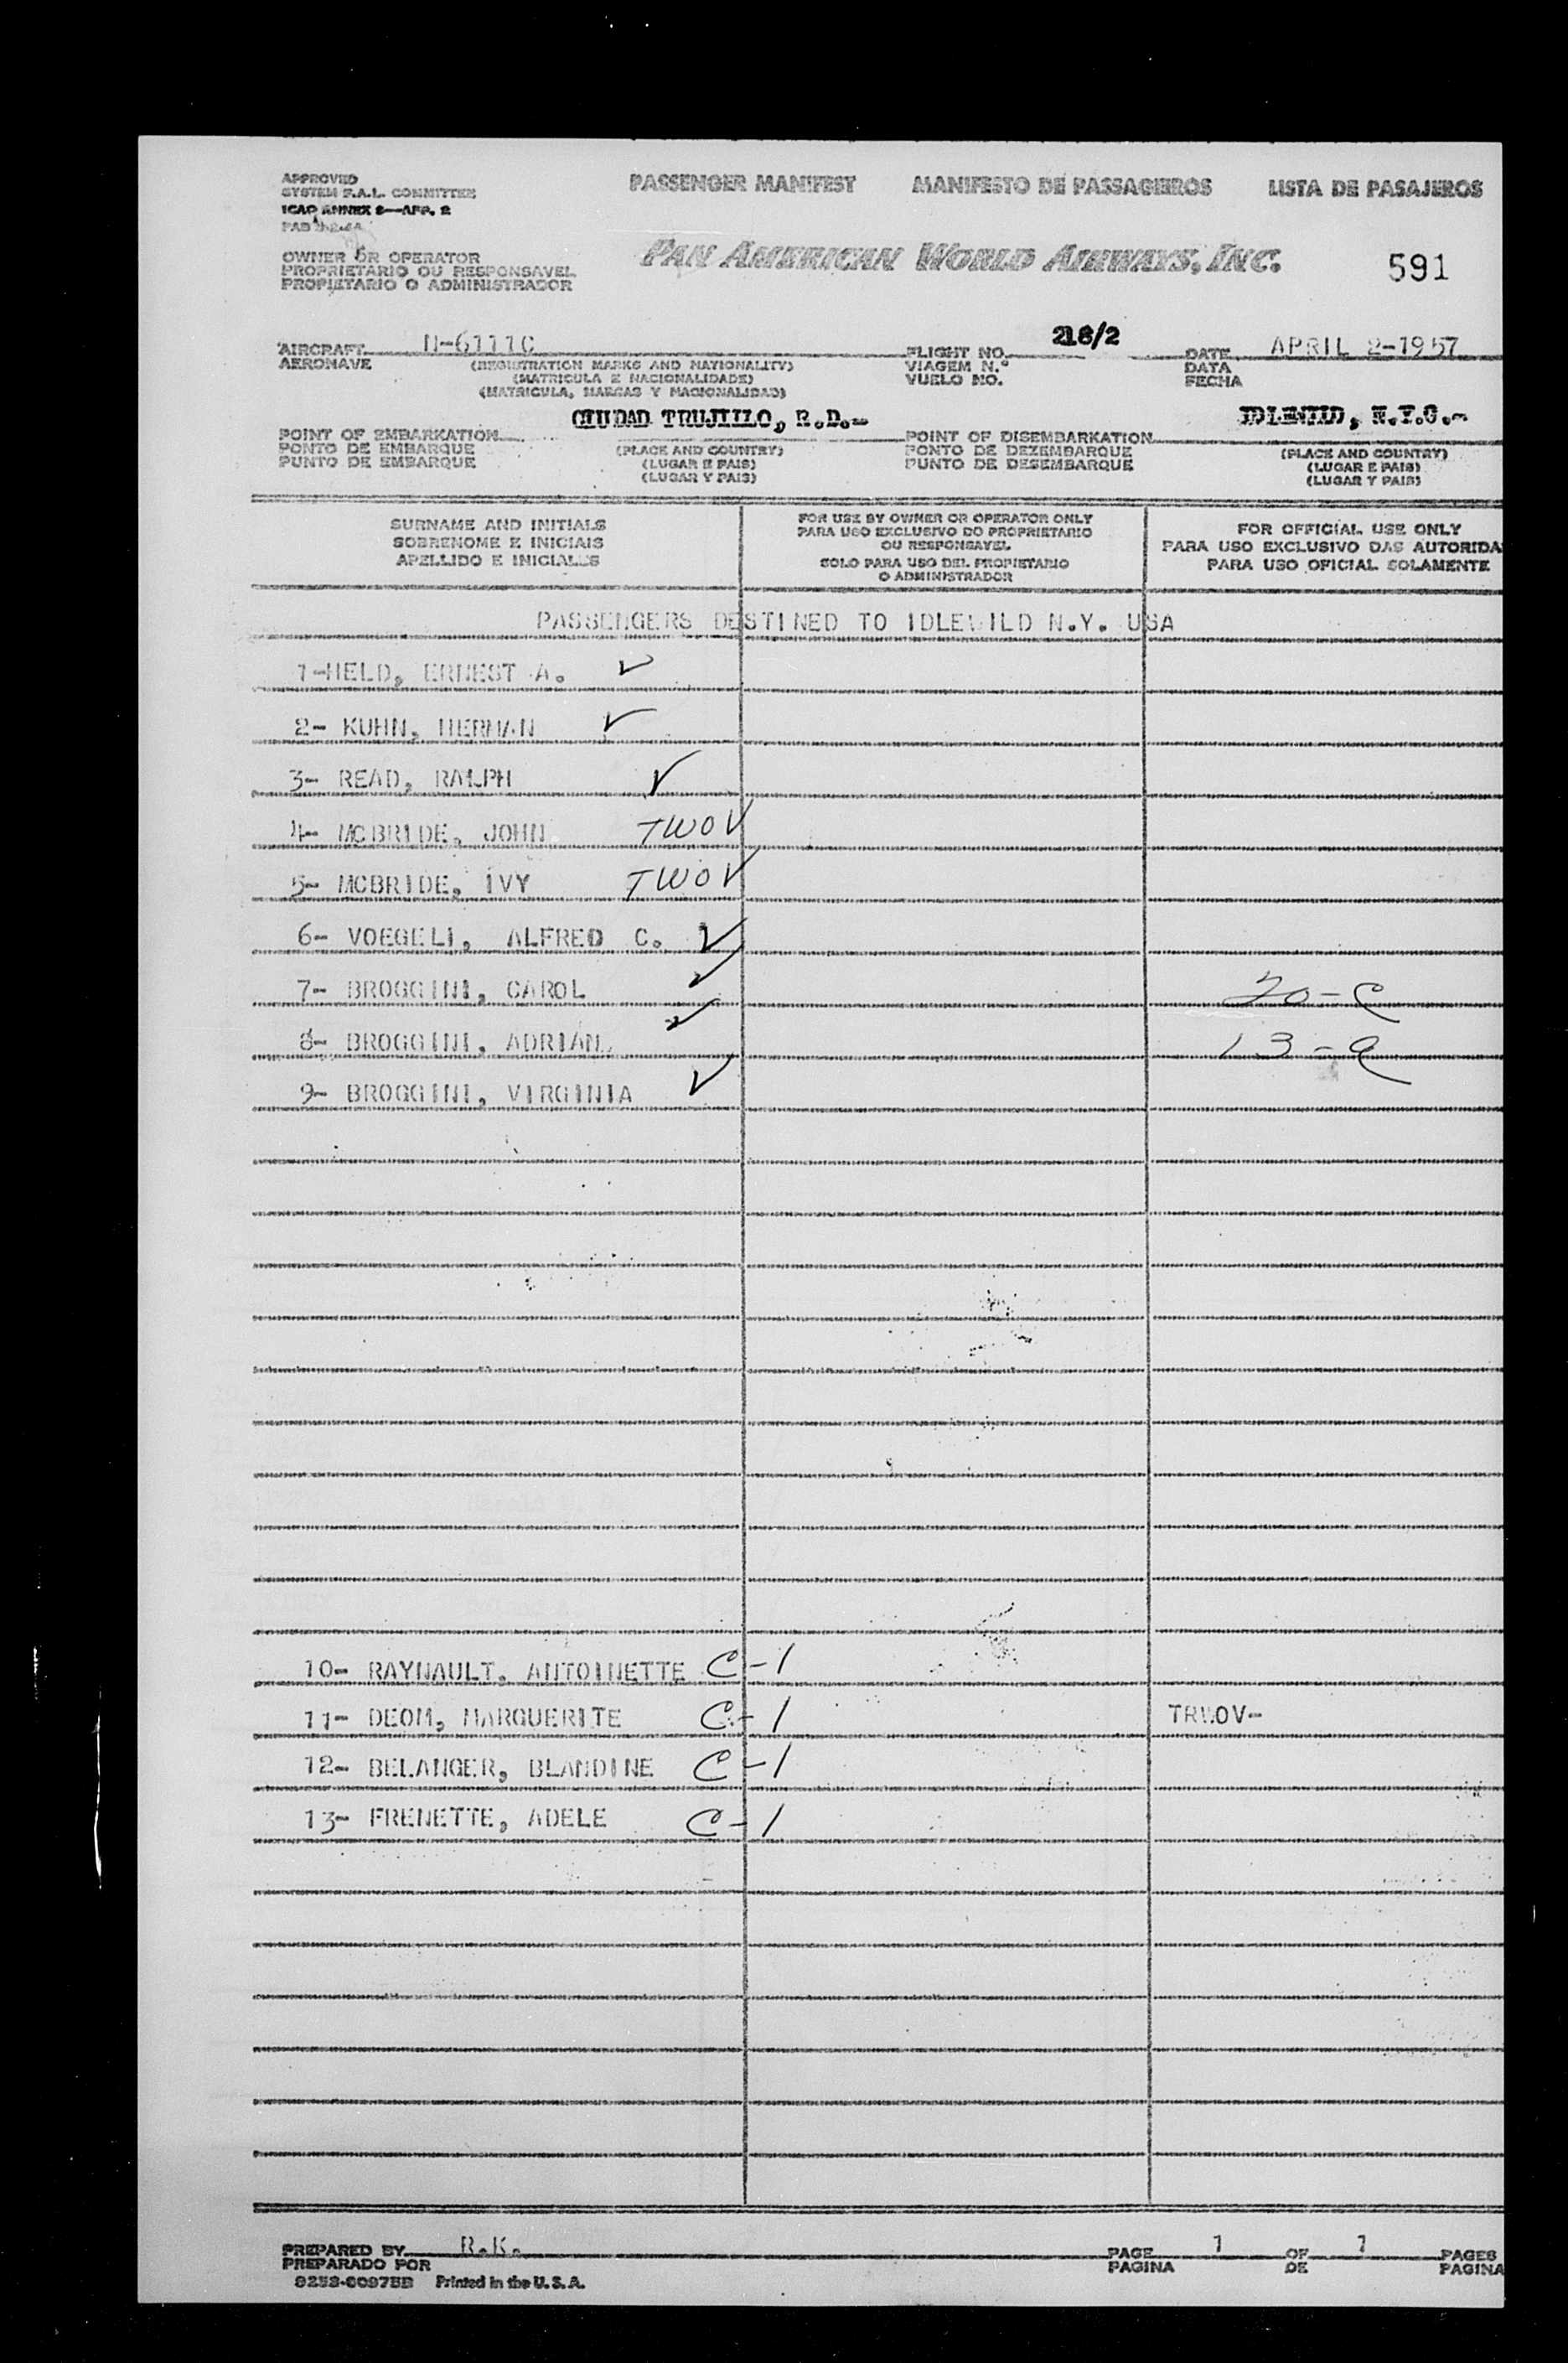 APPROVED
SYSTEM F.A.L. COMMITTEE
ICAO ANNEX 9—APP. 2
PASSENGER MANIFEST MANIFESTO DE PASSAGEIROS LISTA DE PASAJEROS
OWNER OR OPERATOR
PROPRIETARIO OU RESPONSAVEL
PROPIETARIO O ADMINISTRADOR
PAN AMERICAN WORLD AIRWAYS, INC. 591
AIRCRAFT N-6111C FLIGHT NO. 218/2 DATE APRIL 2-1957
AERONAVE (REGISTRATION MARKS AND NATIONALITY) VIAGEM N.º DATA
(MATRICULA E NACIONALIDADE) VUELO NO. FECHA
(MATRICULA, MARCAS Y NACIONALIDAD)
CIUDAD TRUJILLO, R.D.- N.Y.C.-
POINT OF EMBARKATION POINT OF DISEMBARKATION
PONTO DE EMBARQUE (PLACE AND COUNTRY) PONTO DE DEZEMBARQUE (PLACE AND COUNTRY)
PUNTO DE EMBARQUE (LUGAR E PAIS) PUNTO DE DESEMBARQUE (LUGAR E PAIS)
(LUGAR Y PAIS) (LUGAR Y PAIS)
SURNAME AND INITIALS
SOBRENOME E INICIAIS
APELLIDO E INICIALES
FOR USE BY OWNER OR OPERATOR ONLY
PARA USO EXCLUSIVO DO PROPRIETARIO
OU RESPONSAVEL
SOLO PARA USO DEL PROPIETARIO
O ADMINISTRADOR
FOR OFFICIAL USE ONLY
PARA USO EXCLUSIVO DAS AUTORIDA
PARA USO OFICIAL SOLAMENTE
PASSENGERS DESTINED TO IDLEWILD N.Y. USA
1-HELD, ERNEST A. ✓
2- KUHN, HERMAN ✓
3- READ, RALPH ✓
4- MCBRIDE, JOHN TWOV
5- MCBRIDE, IVY TWOV
6- VOEGELI, ALFRED C. ✓
7- BROGGINI, CAROL ✓ 20-C
8- BROGGINI, ADRIAN ✓ 13-a
9- BROGGINI, VIRGINIA ✓
10- RAYNAULT, ANTOINETTE C-1
11- DEOM, MARGUERITE C-1 TRWOV-
12- BELANGER, BLANDINE C-1
13- FRENETTE, ADELE C-1
PREPARED BY R.K. PAGE 1 OF 1 PAGES
PREPARADO POR PAGINA DE PAGINA
Printed in the U.S.A.